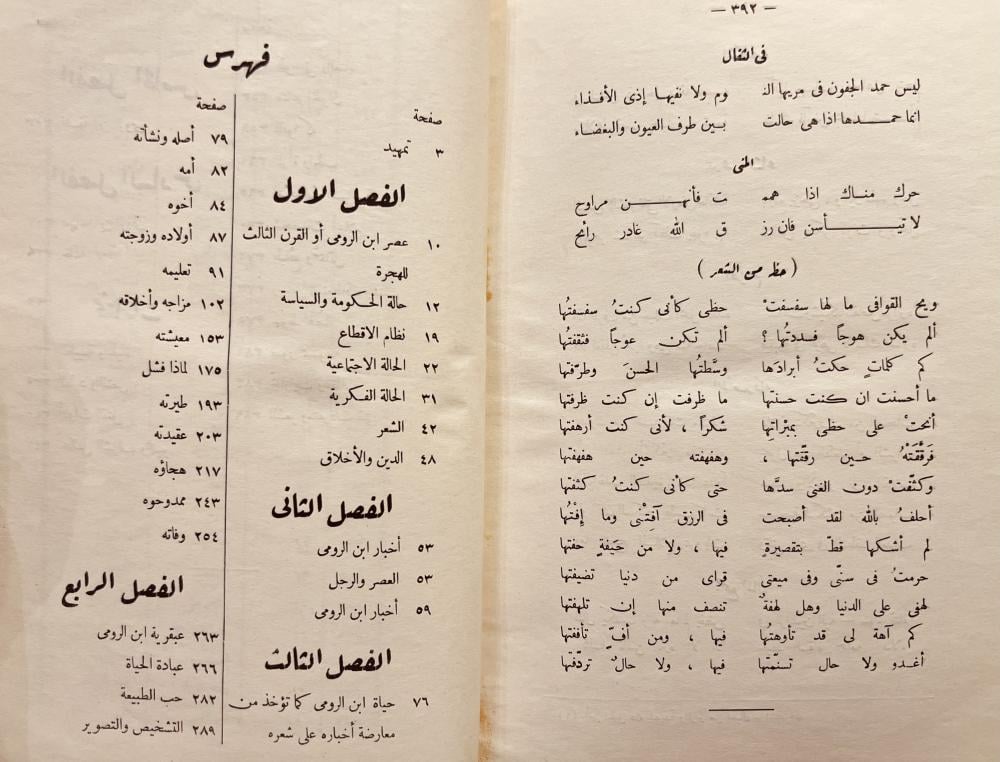 — ٣٩٢ —
فى الثقال
ليس حمد الجفون فى مريها الن وم ولا نفيها إذى الأقذاء
انما حمدها اذا هى حالت بين طرف العيون والبغضاء
المنى
حرك مناك اذا همم ت فأنهن مراوح
لا تيأسن فان رز ق الله غادر رائح
( حظه من الشعر )
ويح القوافى ما لها سفسفتْ حظى كأنى كنتُ سفسفتُها
ألم يكن هوجاً فسددتُها ؟ ألم تكن عوجاً فثقفتُها
كم كلماتٍ حكتُ أبرادَها وسَّطتُها الحسنَ وطرّفتها
ما أحسنت ان كنت حسنتها ما ظرفت إن كنت ظرفتها
أنحتْ على حظى بمبراتِها شكراً ، لأنى كنت أرهفتها
فَرَقَّقَتْهُ حين رققّتها ، وهفهفته حين هفهفتها
وكثّفتْ دون الغنى سدَّها حتى كأنى كنتُ كثفتها
أحلفُ بالله لقد أصبحت فى الرزق آفِتْنى وما إفْتُها
لم أشكها قطّ بتقصيرةٍ فيها ، ولا من حَيفةٍ حفتها
حرمتُ فى سنّى وفى ميعتى قراى من دنيا تضيفتها
لهفى على الدنيا وهل لهفةٌ تنصف منها إن تلهفتها
كم آهة لى قد تأوهتُها فيها ، ومن أفّ تأففتها
أغدو ولا حال تسنّمتها فيها ، ولا حالٌ تردّفتها
فهرس
صفحة
٣ تمهيد
الفصل الاول
١٠ عصر ابن الرومى أو القرن الثالث
للهجرة
١٢ حالة الحكومة والسياسة
١٩ نظام الاقطاع
٢٢ الحالة الاجتماعية
٣١ الحالة الفكرية
٤٢ الشعر
٤٨ الدين والأخلاق
الفصل الثانى
٥٣ أخبار ابن الرومى
٥٣ العصر والرجل
٥٩ أخبار ابن الرومى
الفصل الثالث
٧٦ حياة ابن الرومى كما تؤخذ من
معارضة أخباره على شعره
صفحة
٧٩ أصله ونشأته
٨٢ أمه
٨٤ أخوه
٨٧ أولاده وزوجته
٩١ تعليمه
١٠٢ مزاجه وأخلاقه
١٥٣ معيشته
١٧٥ لماذا فشل
١٩٣ طيرته
٢٠٣ عقيدته
٢١٧ هجاؤه
٢٤٣ ممدوحوه
٢٥٤ وفاته
الفصل الرابع
٢٦٣ عبقرية ابن الرومى
٢٦٦ عبادة الحياة
٢٨٢ حب الطبيعة
٢٨٩ التشخيص والتصوير